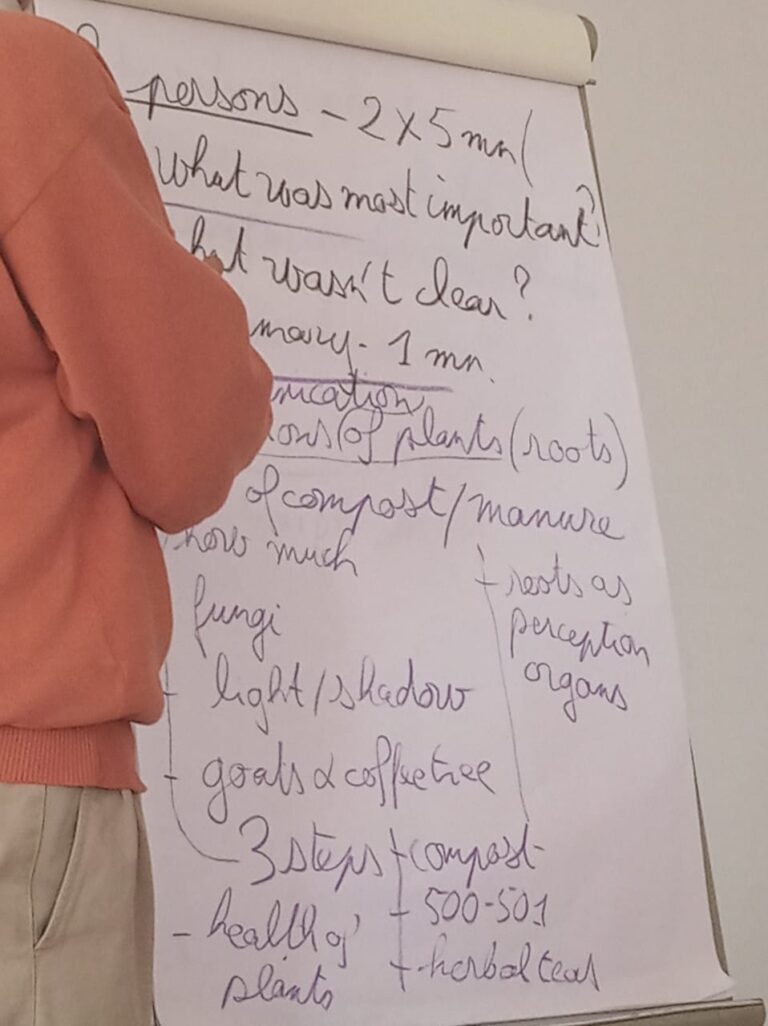 persons - 2 x 5 mn (
what was most important?
hat wasn't clear?
mary - 1 mn.
nication
ions of plants (roots)
of compost / manure
how much
- roots as
perception
organs
fungi
- light / shadow
- goats & coffee tree
3 steps - compost
- 500-501
- herbal teas
- health of
plants